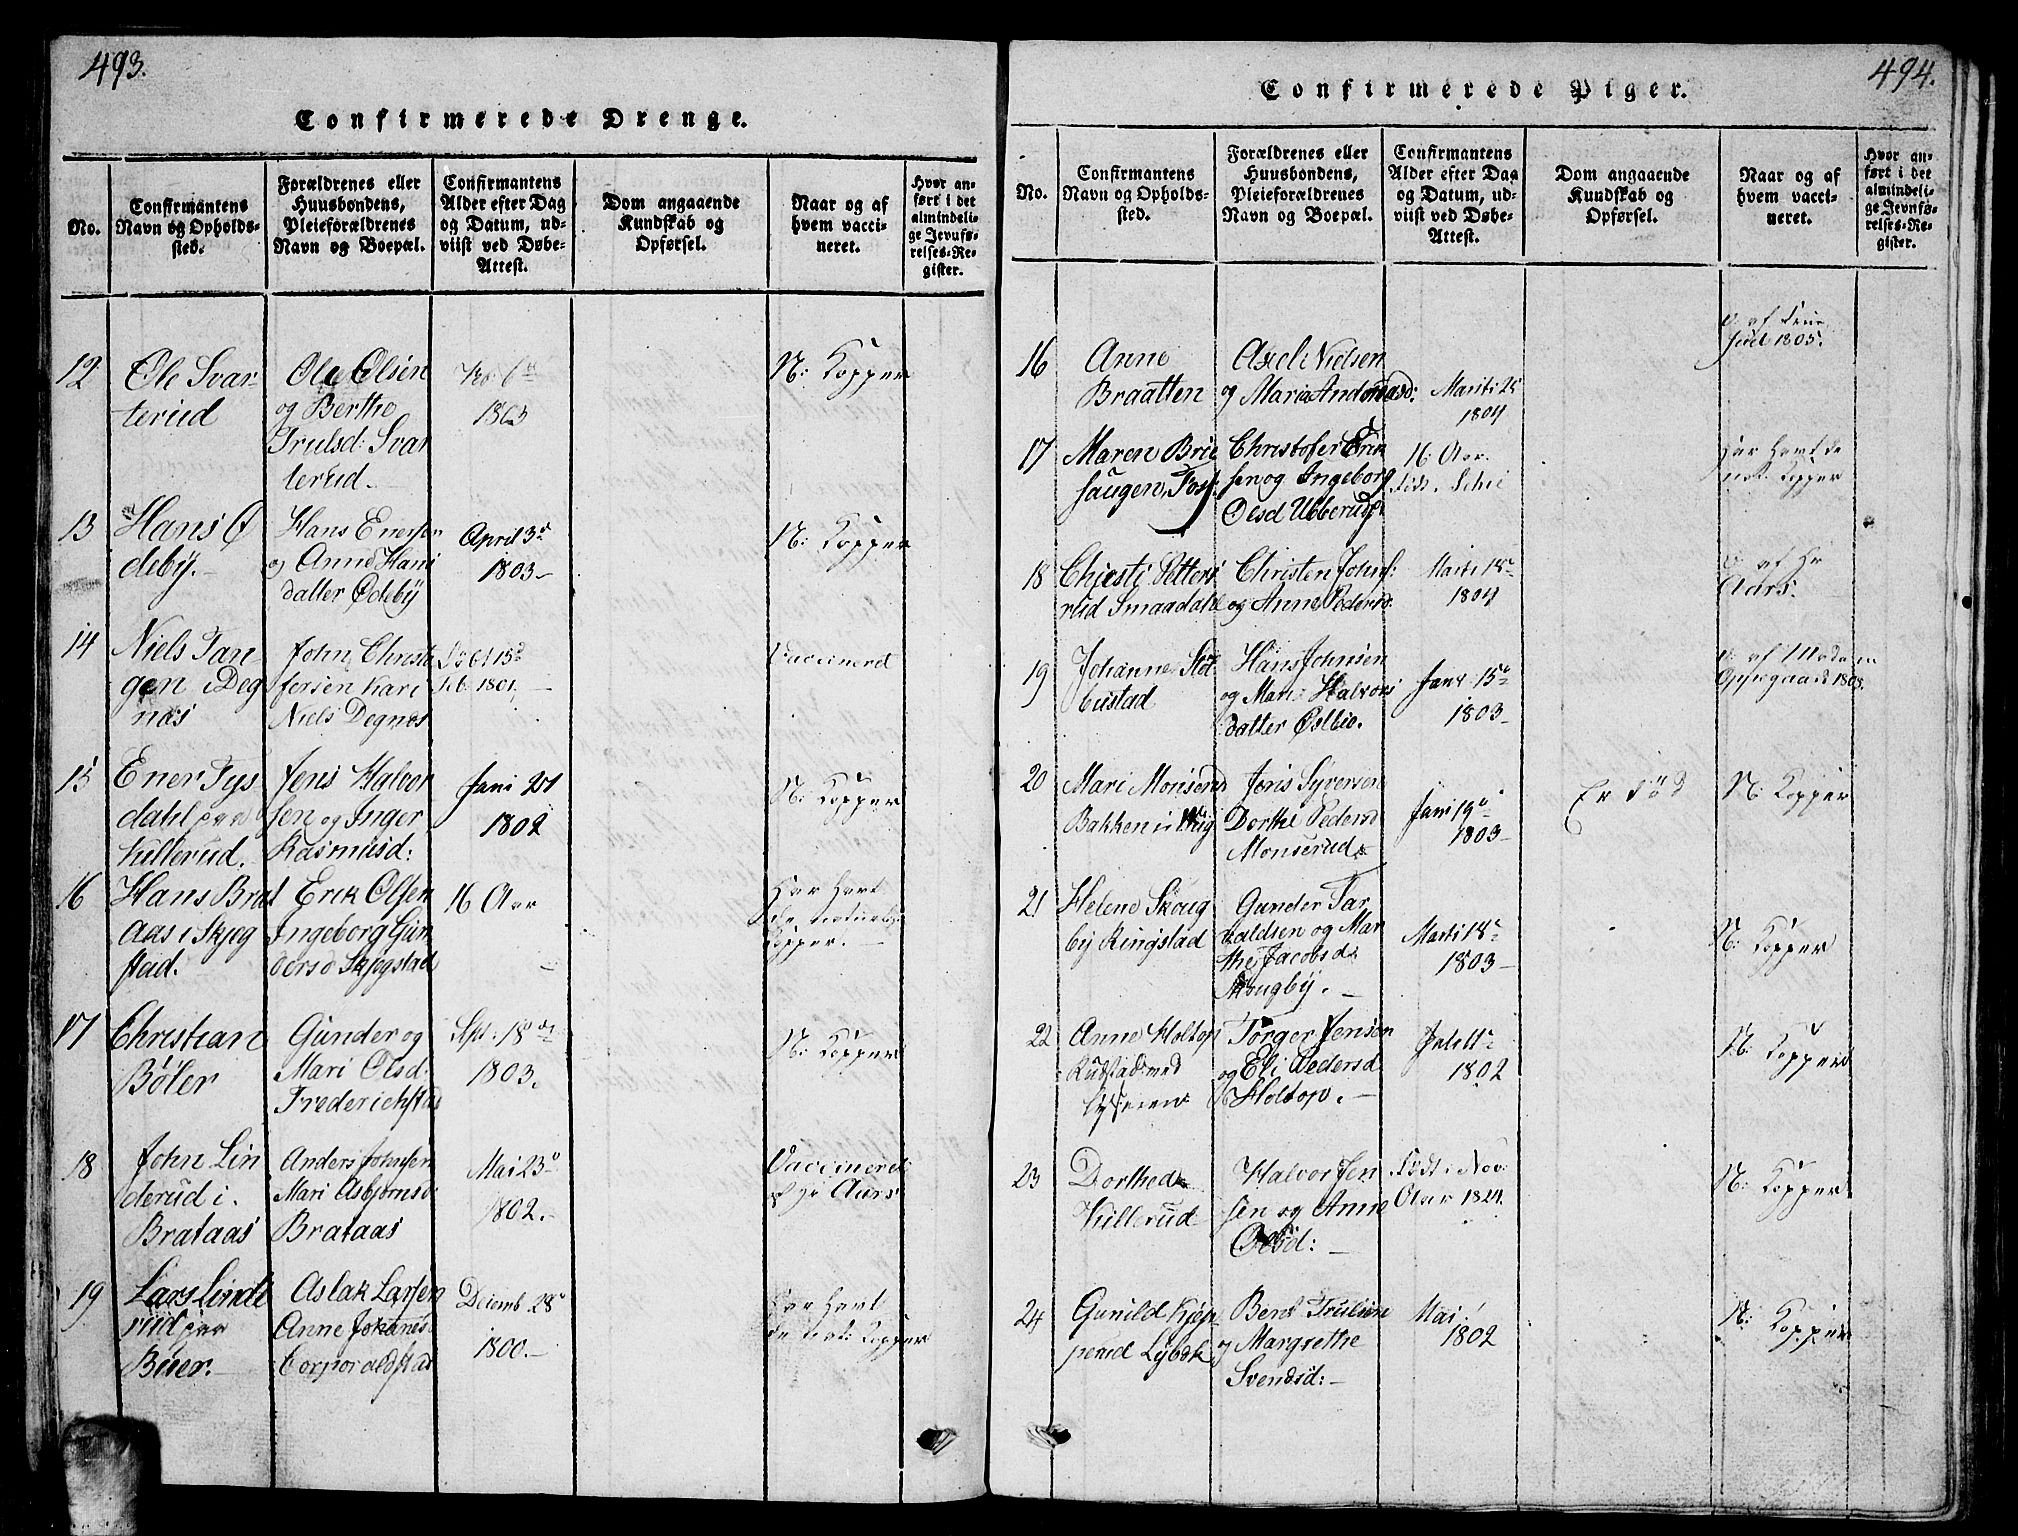 493.
Confirmerede Drenge.
No.
Confirmantens
Navn og Opholds-
sted.
Forældrenes eller
Huusbondens,
Pleieforældrenes
Navn og Boepæl.
Confirmantens
Alder efter Dag
og Datum, ud-
viist ved Døbe-
Attest.
Dom angaaende
Kundskab og
Opførsel.
Naar og af
hvem vacci-
neret.
Hvor an-
ført i det
almindeli-
ge Jevnfø-
relses-Re-
gister.
12
Ole Svar-
terud
Ole Olsen
og Berthe
Trulsd: Svar
terud.
1803
N: Kopper
13
Hans Ø
deby.
Hans Enersen
og Anne Hans
datter Ødeby
April 3d
1803
N: Kopper
14
Niels Tan-
gen i Deg
nes
John Christo
fersen Kari
Niels Degnes
1801
Vaccinered
15
Ener Tys
dahl
Killerud.
Jens Halvor
sen og Inger
Rasmusd:
Jani 21
1802
N: Kopper
16
Hans Brat
aas i Skjeg
stad.
Erik Olsen
Ingeborg Gun
dersd Skjegstad
16 Aar
Har havt
de naturlig
Kopper.
17
Christian
Bøler
Gunder og
Mari Olsd.
Frederichstad
Spt: 18
1803.
N: Kopper
18
John Lin
derud i
Brataas
Anders Johnsen
Mari Asbjørnsd
Brataas
Mai 23
1802.
Vaccinered
af Hr Aars
19
Lars Linde
rud
Buer.
Aslak Larsen
Anne Johanes
Corporalsstad
Decemb. 28
1800.
Har havt
de nat: Kopper
494.
Confirmerede Piger.
No.
Confirmantens
Navn og Opholds-
sted.
Forældrenes eller
Huusbondens,
Pleieforældrenes
Navn og Boepæl.
Confirmantens
Alder efter Dag
og Datum, ud-
viist ved Døbe-
Attest.
Dom angaaende
Kundskab og
Opførsel.
Naar og af
hvem vacci-
neret.
Hvor an-
ført i det
almindeli-
ge Jevnfø-
relses-Re-
gister.
16
Anne
Braatten
Axel Nielsen
og Maria Andreasd:
Marti 25
1804
af
1805.
17
Maren Brie
haugen,
Christofer Erik
sen og Ingeborg
Olsd Ubberud
16 Aar.
Har havt de
nat: Kopper
18
Chiesti Petters
rud Smaadahl
Christen Johns:
og Anne Pedersd:
Marti 18
1804
af Hr
Aars.
19
Johanne Stol
bustad
Hans Johnsen
og Mari Halvors
datter Øslbie.
Janr 15
1803
af Madam
Oppegaard 1803.
20
Mari Monserud
Bakken i
Joris Syversen
Dorthe Pedersd
Monserud
Jani 19
1803
Er død
N: Kopper
21
Helene Skoug
by Ringstad
Gunder Tar
valdsen og Mar
the Jacobsd:
Skougby.
Marti 18
1803
N: Kopper
22
Anne Holtop
Rudstad med
Lysseren
Torger Jensen
og Eli Pedersd
Holtop.
1802
N: Kopper
23
Dorthe
Killerud
Halvor Jen
sen og Anne
Olsd:
Født i Nov:
N: Kopper
24
Gunild Kjep-
perud Lybæk
Bent Trulsen
og Margrethe
Svendsd:
Mai 1
1802
N: Kopper